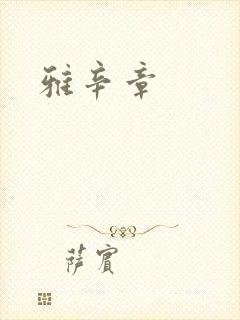 雅辛章
萨宾